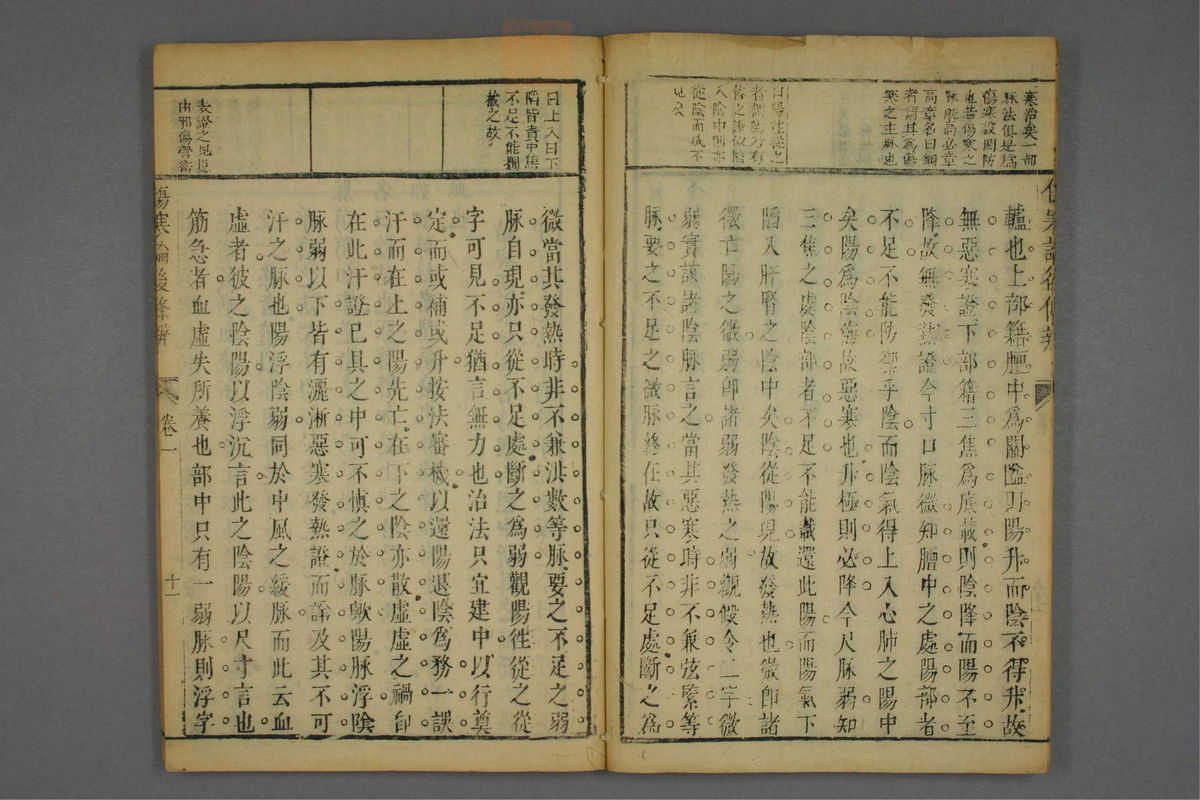 寒治矣一部
脉法俱是爲
傷寒設關防
也若傷寒之
脉既高必章
高章名曰綱
者謂其爲傷
寒之主脉也
曰陽往從之
者謂陽乃有
入陰中則亦
從陰而成不
轤也上部籍膻中爲關鑰則陽升而陰不得升故
無惡寒證下部籍三焦爲底載則陰降而陽不至
降故無發熱證今寸口脉微知膻中之處陽部者
不足不能防禦乎陰而陰氣得上入心肺之陽中
矣陽爲陰薄故惡寒也升極則必降今尺脉弱知
三焦之處陰部者不足不能載還此陽而陽氣下
陷入肝腎之陰中矣陰從陽現故發熱也微卽諸
微亡陽之微弱卽諸弱發熱之弱觀假令二字微
弱實該諸陰脉言之當其惡寒時非不兼弦緊等
脉要之不足之微脉終在故只從不足處斷之爲
曰上入曰下
陷皆責中焦
不足不能捫
截之故
表證之見總
由邪傷營衞
微當其發熱時非不兼洪數等脉要之不足之弱
脉自現亦只從不足處斷之爲弱觀陽往從之從
字可見不足猶言無力也治法只宜建中以行奠
定而或補或升按法審機以還陽退陰爲務一誤
汗而在上之陽先亡在下之陰亦散虛虛之禍卽
在此汗證已具之中可不慎之於脉歟陽脉浮陰
脉弱以下皆有灑淅惡寒發熱證而諦及其不可
汗之脉也陽浮陰弱同於中風之緩脉而此云血
虛者彼之陰陽以浮沉言此之陰陽以尺寸言也
筋急者血虛失所養也部中只有一弱脉則浮字
傷寒論後條辨
卷一
十一